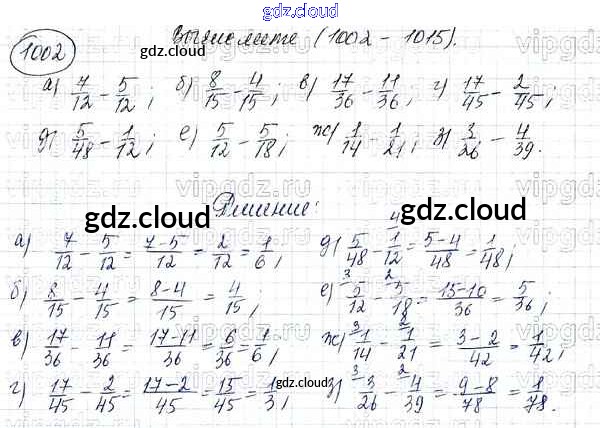 gdz.cloud
1002 Выполните (1002 - 1015).
gdz.cloud
а) 7/12 - 5/12; б) 8/15 - 4/15; в) 17/36 - 11/36; г) 17/45 - 2/45;
д) 5/48 - 1/12; е) 5/12 - 5/18; ж) 1/14 - 1/21; з) 3/26 - 4/39.
vipgdz.ru
Решение:
gdz.cloud gdz.cloud
а) 7/12 - 5/12 = (7-5)/12 = 2/12 = 1/6; д) 5/48 - 1/12 = (5-4)/48 = 1/48;
б) 8/15 - 4/15 = (8-4)/15 = 4/15; е) 5/12 - 5/18 = (15-10)/36 = 5/36;
в) 17/36 - 11/36 = (17-11)/36 = 6/36 = 1/6; ж) 1/14 - 1/21 = (3-2)/42 = 1/42;
г) 17/45 - 2/45 = (17-2)/45 = 15/45 = 1/3; з) 3/26 - 4/39 = (9-8)/78 = 1/78.
gdz.cloud